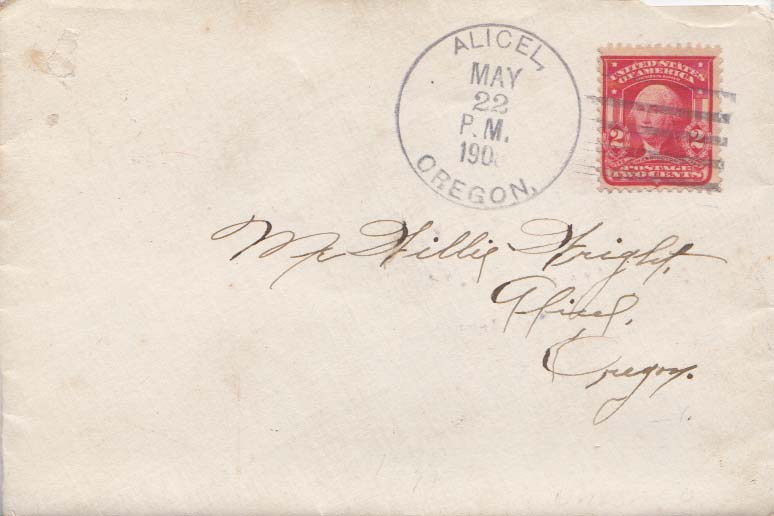 ALICEL,
MAY
22
P.M.
190
OREGON.
UNITED STATES
OF AMERICA
2 2
POSTAGE
TWO CENTS
Mr Willie Wright,
Alicel,
Oregon.